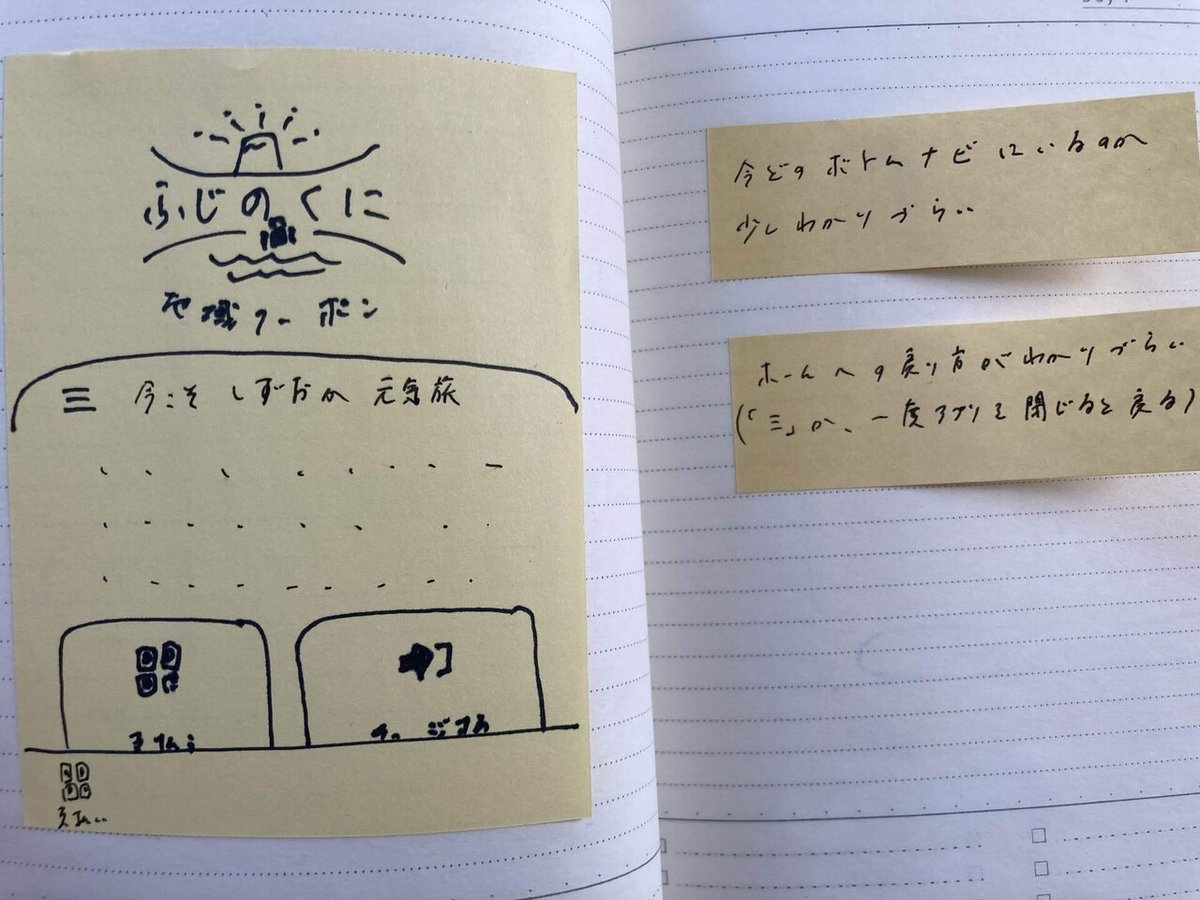 ふじのくに
地域クーポン
三 今こそ しずおか 元気旅
支払い
チャージする
支払い
今どのボトムナビにいるのか
少しわかりづらい
ホームへの戻り方がわかりづらい
(「三」か、一度アプリを閉じると戻る)